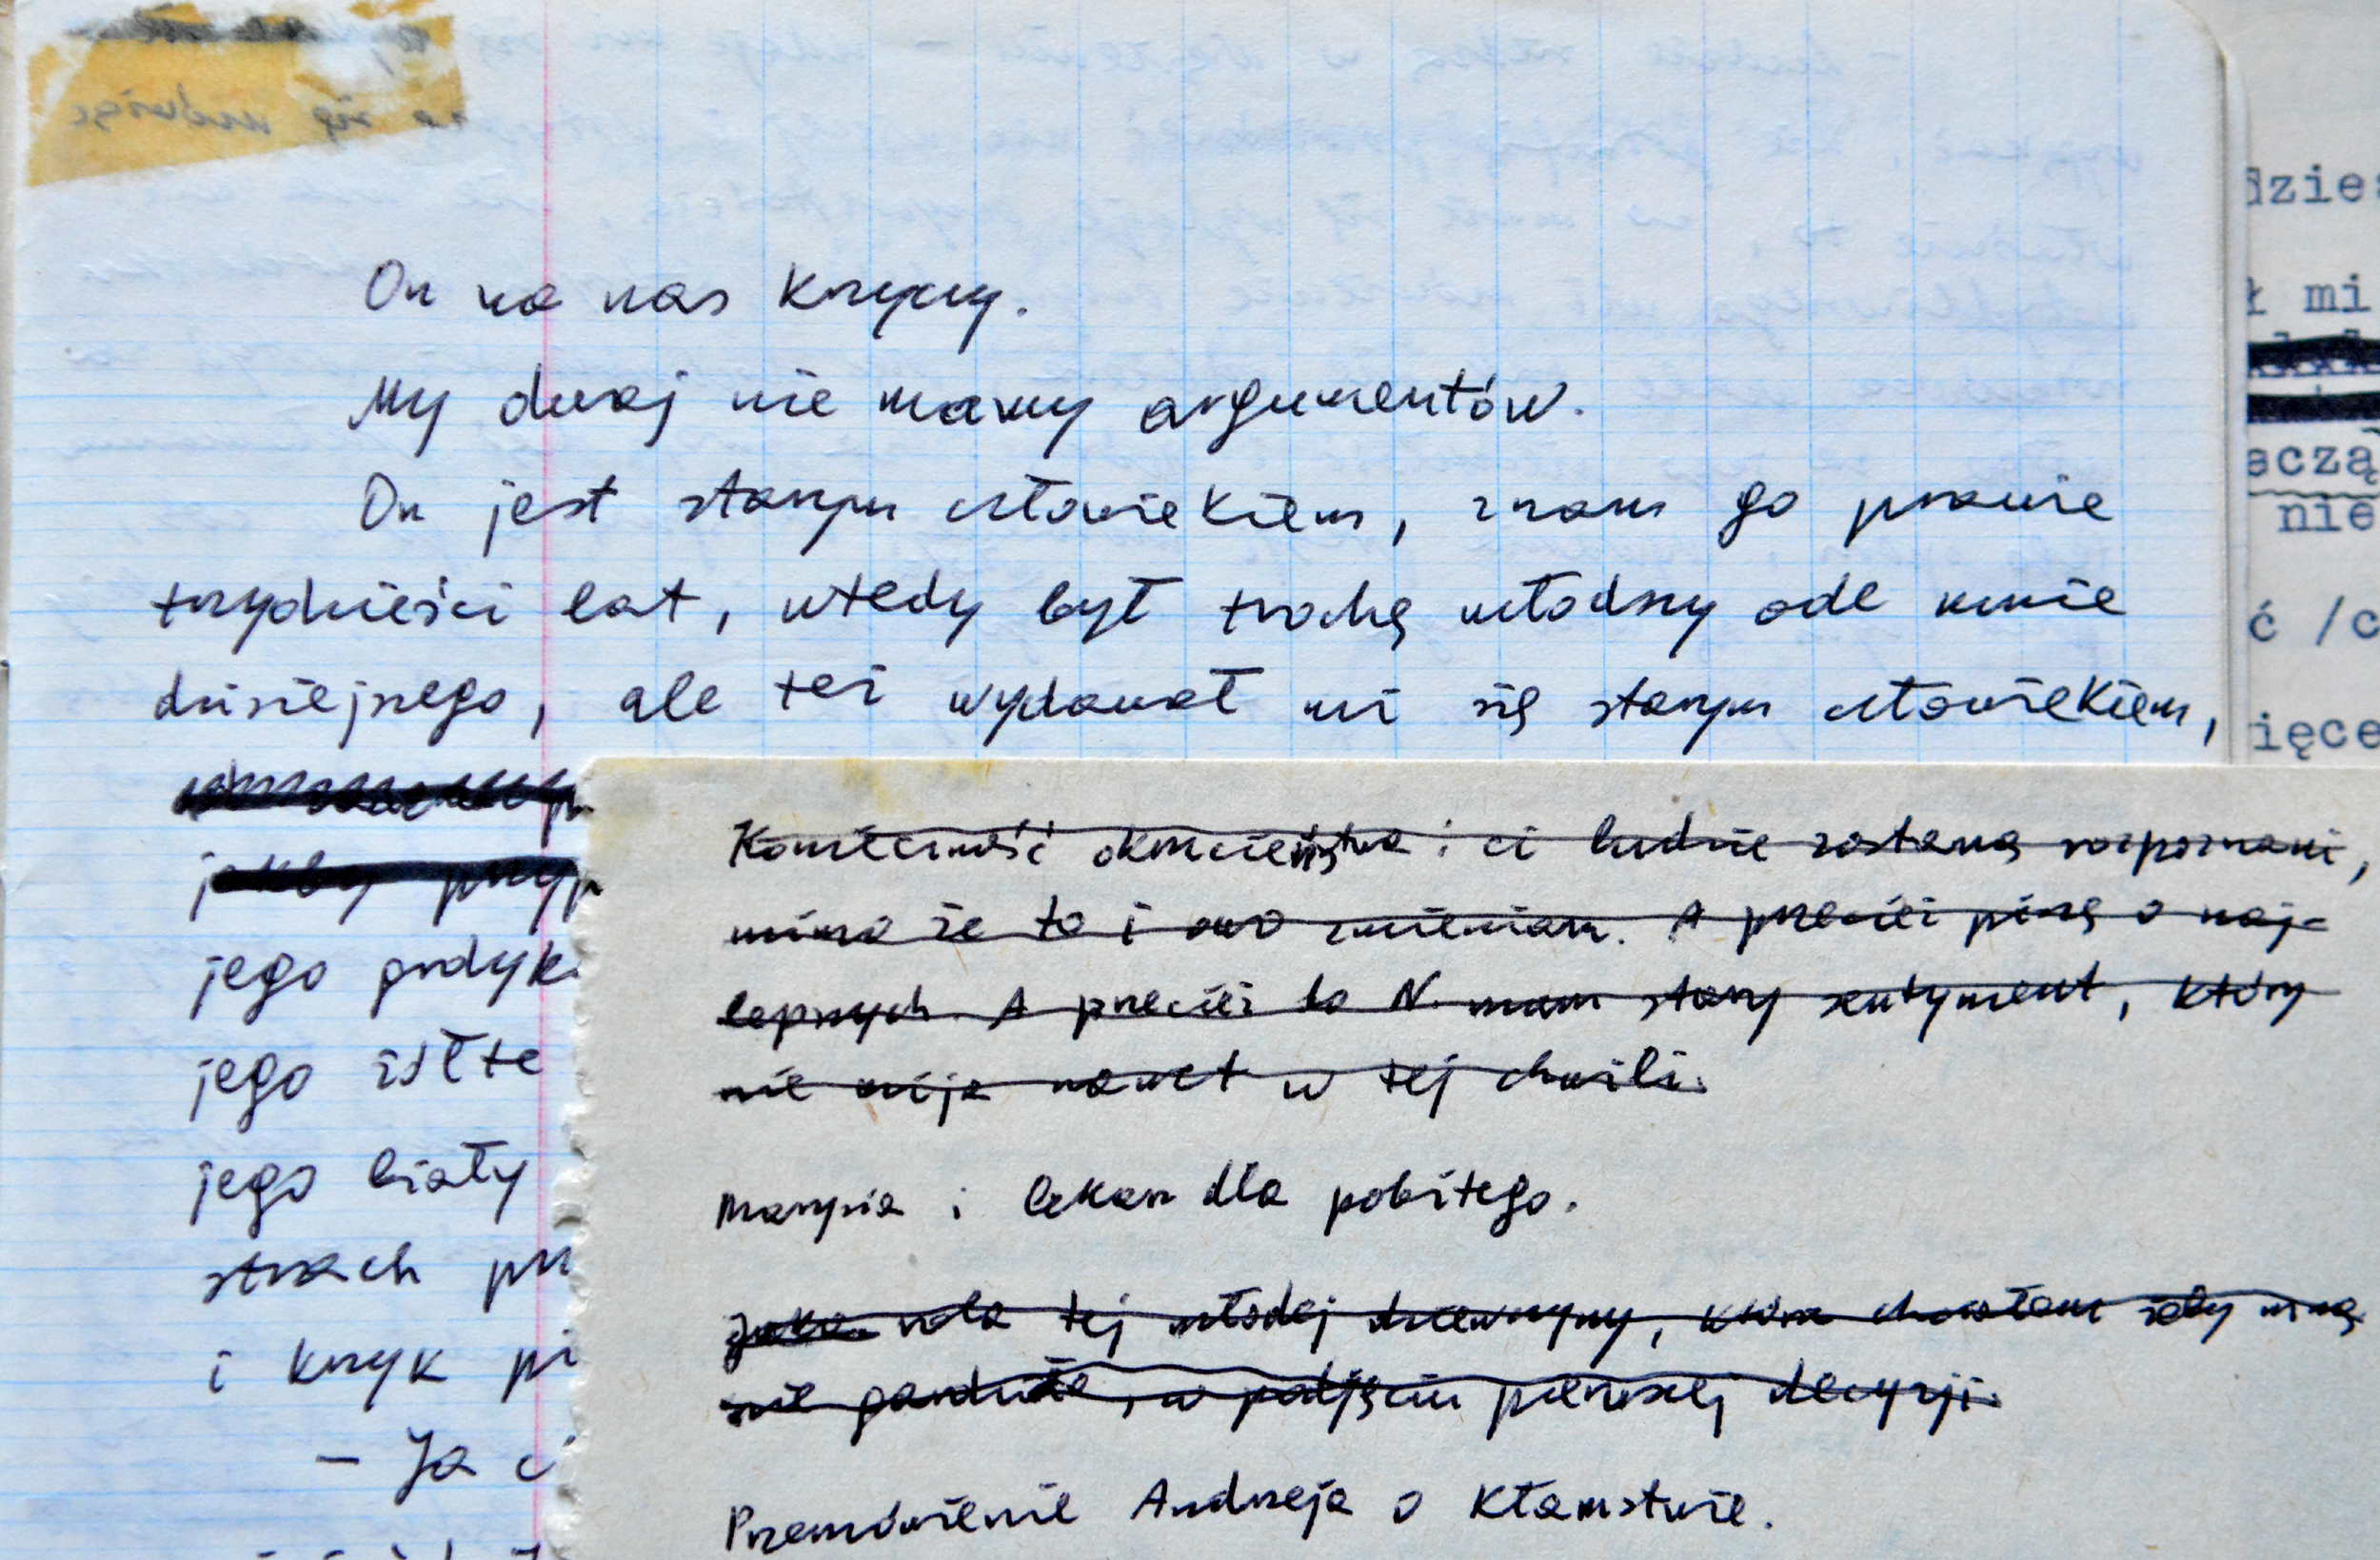 On na nas krzyczy.
My dwaj nie mamy argumentów.
On jest starym człowiekiem, znam go prawie
trzydzieści lat, wtedy był trochę młodszy ode mnie
dzisiejszego, ale też wydawał mi się starym człowiekiem,
jakby przyp
jego podyk
jego żółte
jego biały
strach prz
i krzyk pi
– Ja ci
Konieczność okrucieństwa: ci ludzie zostaną rozpoznani,
mimo że to i owo zmieniam. A przecież piszę o naj-
lepszych. A przecież do N. mam stary sentyment, który
nie mija nawet w tej chwili.
Marysia i lekarz dla pobitego.
Jaka rola tej młodej dziewczyny, która chciałam żeby mną
nie gardziła, w podjęciu pierwszej decyzji.
Przemówienie Andrzeja o kłamstwie.
dzies
ł mi
eczą
nie
ć /c
ięce